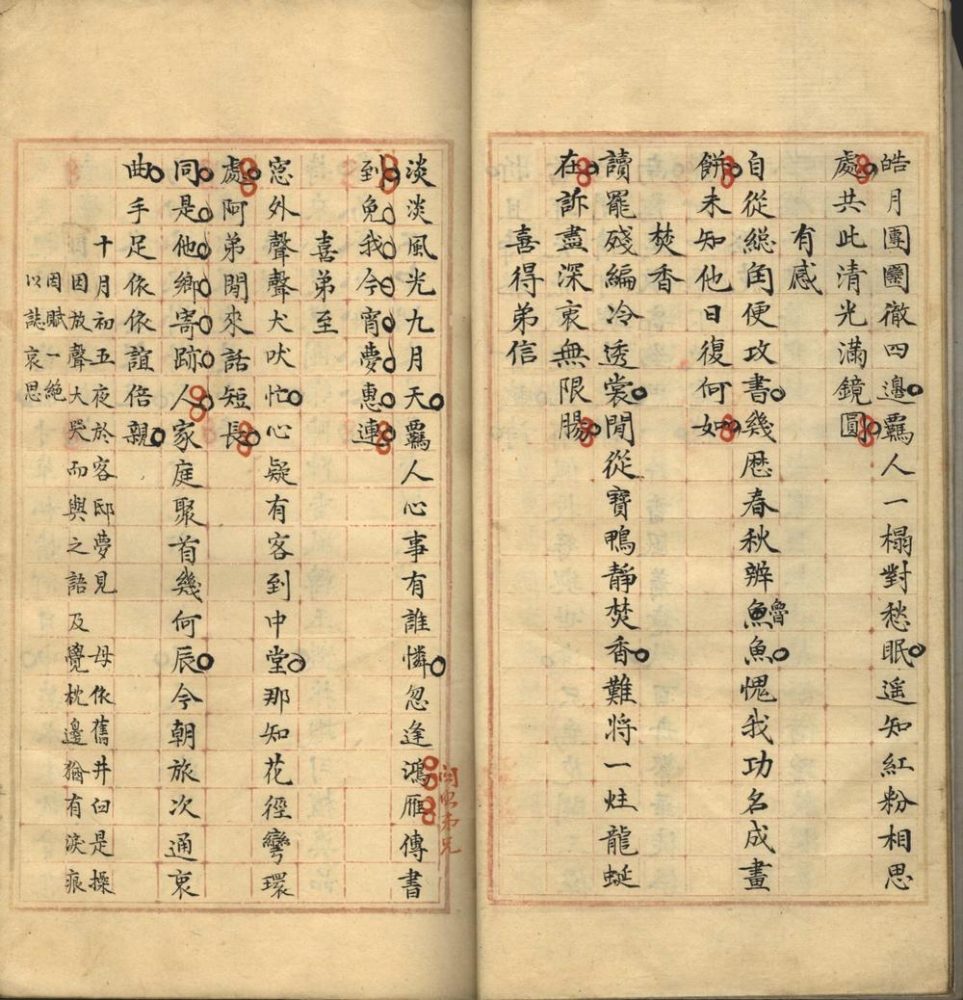 皓月團團徹四邊羈人一榻對愁眠遥知紅粉相思
處共此清光滿鏡圓
有感
自從總角便攻書幾歴春秋辨魚魯魚愧我功名成畫
餅未知他日復何如
焚香
讀罷殘編冷透裳閒從寶鴨静焚香難將一炷龍蜒
在訴盡深衷無限腸
喜得弟信
淡淡風光九月天羈人心事有誰憐忽逢鴻雁傳書
到免我今宵夢惠連
喜弟至
窓外聲聲犬吠忙心疑有客到中堂那知花徑彎環
處阿弟閒來話短長
同是他鄉寄跡人家庭聚首幾何辰今朝旅次通衷
曲手足依依誼倍親
十月初五夜於客邸夢見 母依舊井臼是操
因放聲大哭而與之語及覺枕邊猶有淚痕
因賦一絶
以誌哀思